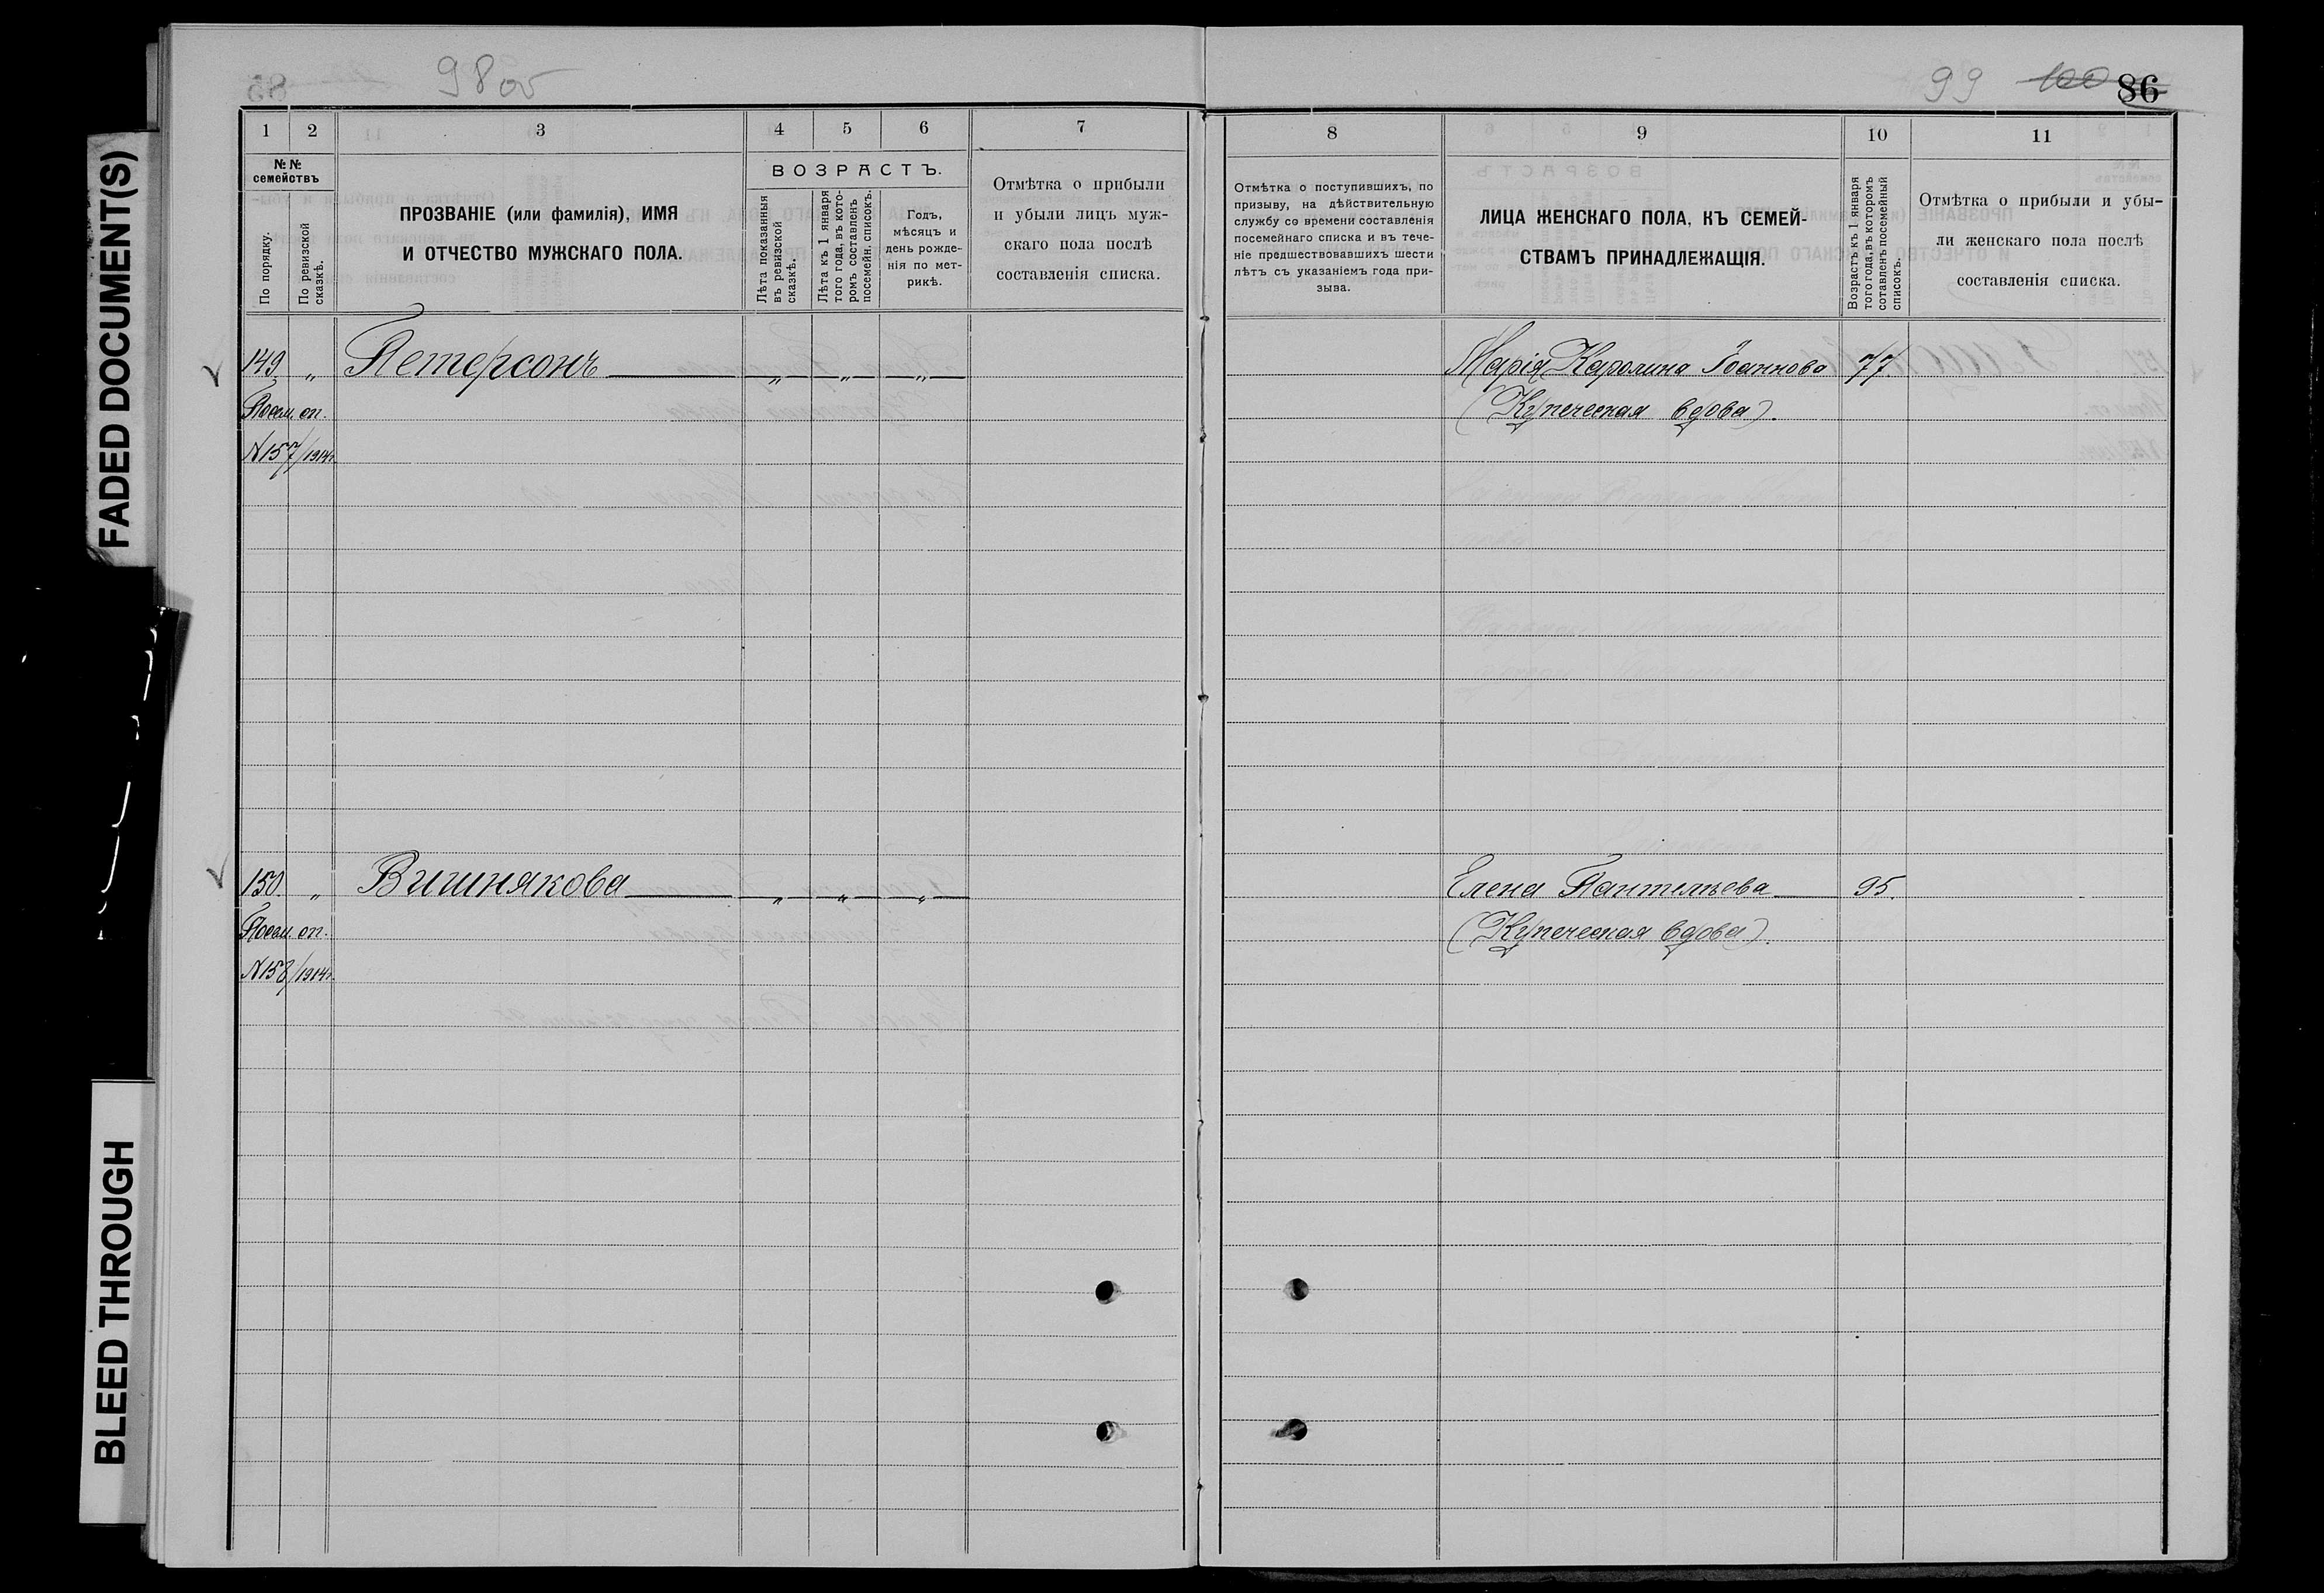 FADED DOCUMENT(S)
BLEED THROUGH
98 об
1 2 3 4 5 6 7
№ №
семействъ
По порядку.
По ревизской
сказкѣ.
ПРОЗВАНІЕ (или фамилія), ИМЯ
И ОТЧЕСТВО МУЖСКАГО ПОЛА.
ВОЗРАСТЪ.
Лѣта показанныя
въ ревизской
сказкѣ.
Лѣта къ 1 января
того года, въ кото-
ромъ составленъ
посемейн. списокъ.
Годъ,
мѣсяцъ и
день рожде-
нія по мет-
рикѣ.
Отмѣтка о прибыли
и убыли лицъ муж-
скаго пола послѣ
составленія списка.
149 „ Петерсонъ „ „ „
Посем. сп.
N157/1914г.
150 „ Вишнякова „ „ „
Посем. сп.
N158/1914г.
99 100 86
8 9 10 11
Отмѣтка о поступившихъ, по
призыву, на дѣйствительную
службу со времени составленія
посемейнаго списка и въ тече-
ніе предшествовавшихъ шести
лѣтъ съ указаніемъ года при-
зыва.
ЛИЦА ЖЕНСКАГО ПОЛА, КЪ СЕМЕЙ-
СТВАМЪ ПРИНАДЛЕЖАЩІЯ.
Возрастъ къ 1 января
того года, въ которомъ
сотавленъ посемейный
списокъ.
Отмѣтка о прибыли и убы-
ли женскаго пола послѣ
составленія списка.
Марія Каролина Іоаннова 77
(Купеческая вдова).
Елена Пантельева 95.
(Купеческая вдова).